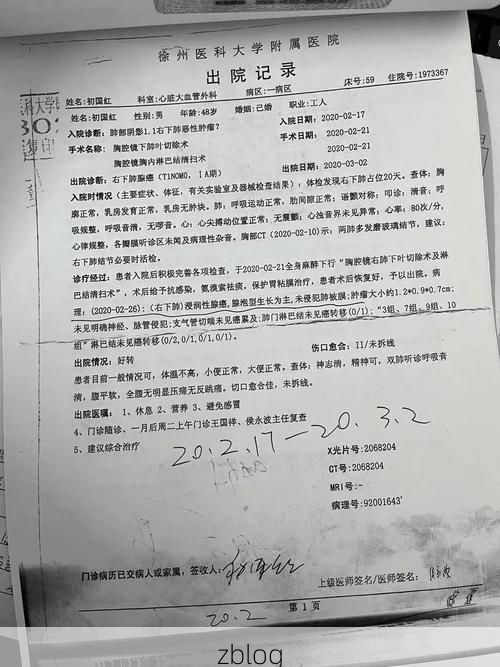 徐州医科大学附属医院
出院记录
姓名:初国红 科室:心脏大血管外科 病区:一病区 床号:59 住院号:1973367
姓名:初国红 性别:男 年龄:48岁 婚姻:已婚 职业:工人
入院诊断:肺部阴影1.1右下肺恶性肿瘤? 入院日期:2020-02-17
手术名称: 胸腔镜下肺叶切除术 手术日期:2020-02-21
胸腔镜胸内淋巴结清扫术 2020-02-21
出院诊断:右下肺腺癌(T1N0M0,ⅠA期) 出院日期:2020-03-02
入院时情况(主要症状、体征,有关实验室及器械检查结果):体检发现右下肺占位20天。查体:胸
廓正常,乳房发育正常,乳房无肿块。肺:呼吸运动正常,肋间隙正常;语颤对称;叩诊:清音;呼
吸规整,呼吸音清,无啰音。心:心尖搏动位置正常;无震颤;心浊音界未见异常;心率:80次/分,
心律规整,各瓣膜听诊区未闻及病理性杂音。胸部CT(2020-02-10)示:两肺多发磨玻璃结节,建议:
右下肺结节必要时活检。
诊疗经过:患者入院后积极完善各项检查,于2020-02-21全身麻醉下行“胸腔镜右肺下叶切除术及淋
巴结清扫术”,术后给予抗感染,氨溴索祛痰,保护胃粘膜治疗,患者术后恢复好,予以出院。病
理:(2020-02-26):(右下肺)浸润性腺癌,腺泡型生长为主,未侵犯肺被膜;肿瘤大小约1.2*0.9*0.7cm;
未见明确神经、脉管侵犯;支气管切端未见癌累及;肺门淋巴结未见癌转移(0/1);“3组、7组、9组、10
组”淋巴结未见癌转移(0/2,0/1,0/1,0/1)。
出院情况:好转 伤口愈合:II/未拆线
患者目前一般情况可,体温不高,小便正常,大便正常。查体:神志清,精神可,双肺听诊呼吸音
清,腹平软,全腹无明显压痛无反跳痛。切口愈合佳,未拆线。
出院医嘱: 1、休息 2、营养 3、避免感冒
4、门诊随诊、一月后周二上午门诊王国祥、侯永波主任复查
5、建议综合治疗
20.2.17—20.3.2
X光片号:2068204
CT号:2068204
MRI号:-
病理号:92001643'
门诊病历已交病人或家属,签收人:
上级医师签名/医师签名:
第 1 页
20.2
zblog